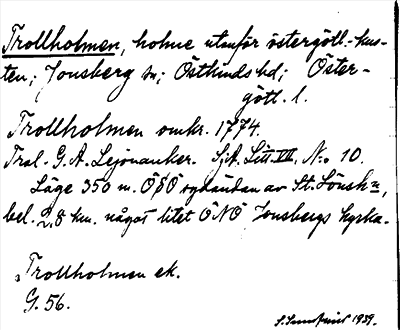 Trollholmen, holme utanför östergötl.-kus-
ten; Jonsberg sn; Östkinds hd; Öster-
götl. l.
Trollholmen omkr. 1774.
Tral. G. A. Lejonanker. SjA. Litt. VII, No 10.
Läge 350 m. ÖSÖ sydändan av St. Lönsh:n,
bel. 2,8 km. något litet ÖNÖ Jonsbergs kyrka.
Trollholmen ek.
G. 56.
1939.